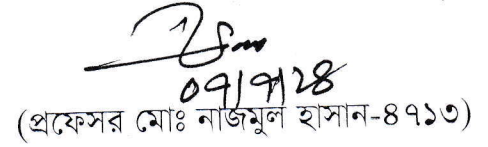 ০৭/৭/২৪
(প্রফেসর মোঃ নাজমুল হাসান-৪৭১৩)